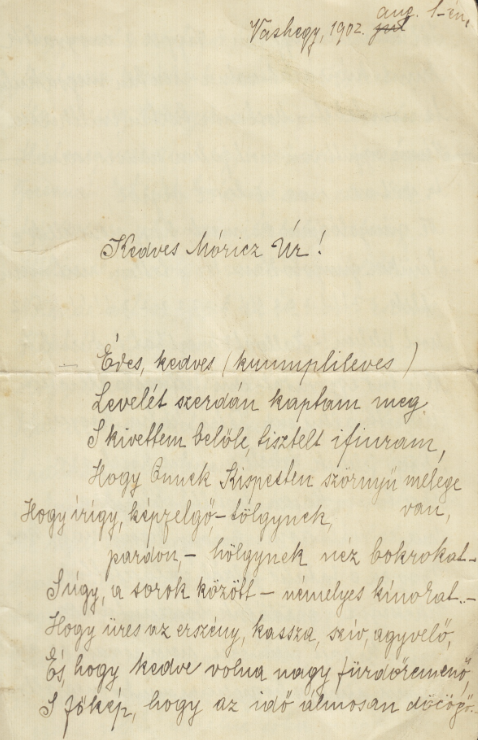 aug. 1-én,
Vashegy, 1902. jul
Kedves Móricz Úr!
Édes, kedves (krumplileves)
Levelét szerdán kaptam meg,
S kivettem belőle, tisztelt ifiuram,
Hogy Önnek Kispesten szörnyű melege
van,
Hogy irígy, képzelgő - tölgynek,
pardon, - hölgynek néz bokrokat -
S úgy, a sorok között - némelyes kínokat. -
Hogy üres az erszény, kassza, szív, agyvelő,
És, hogy kedve volna nagy fürdőremenő,
S főkép, hogy az idő álmosan döcögő -